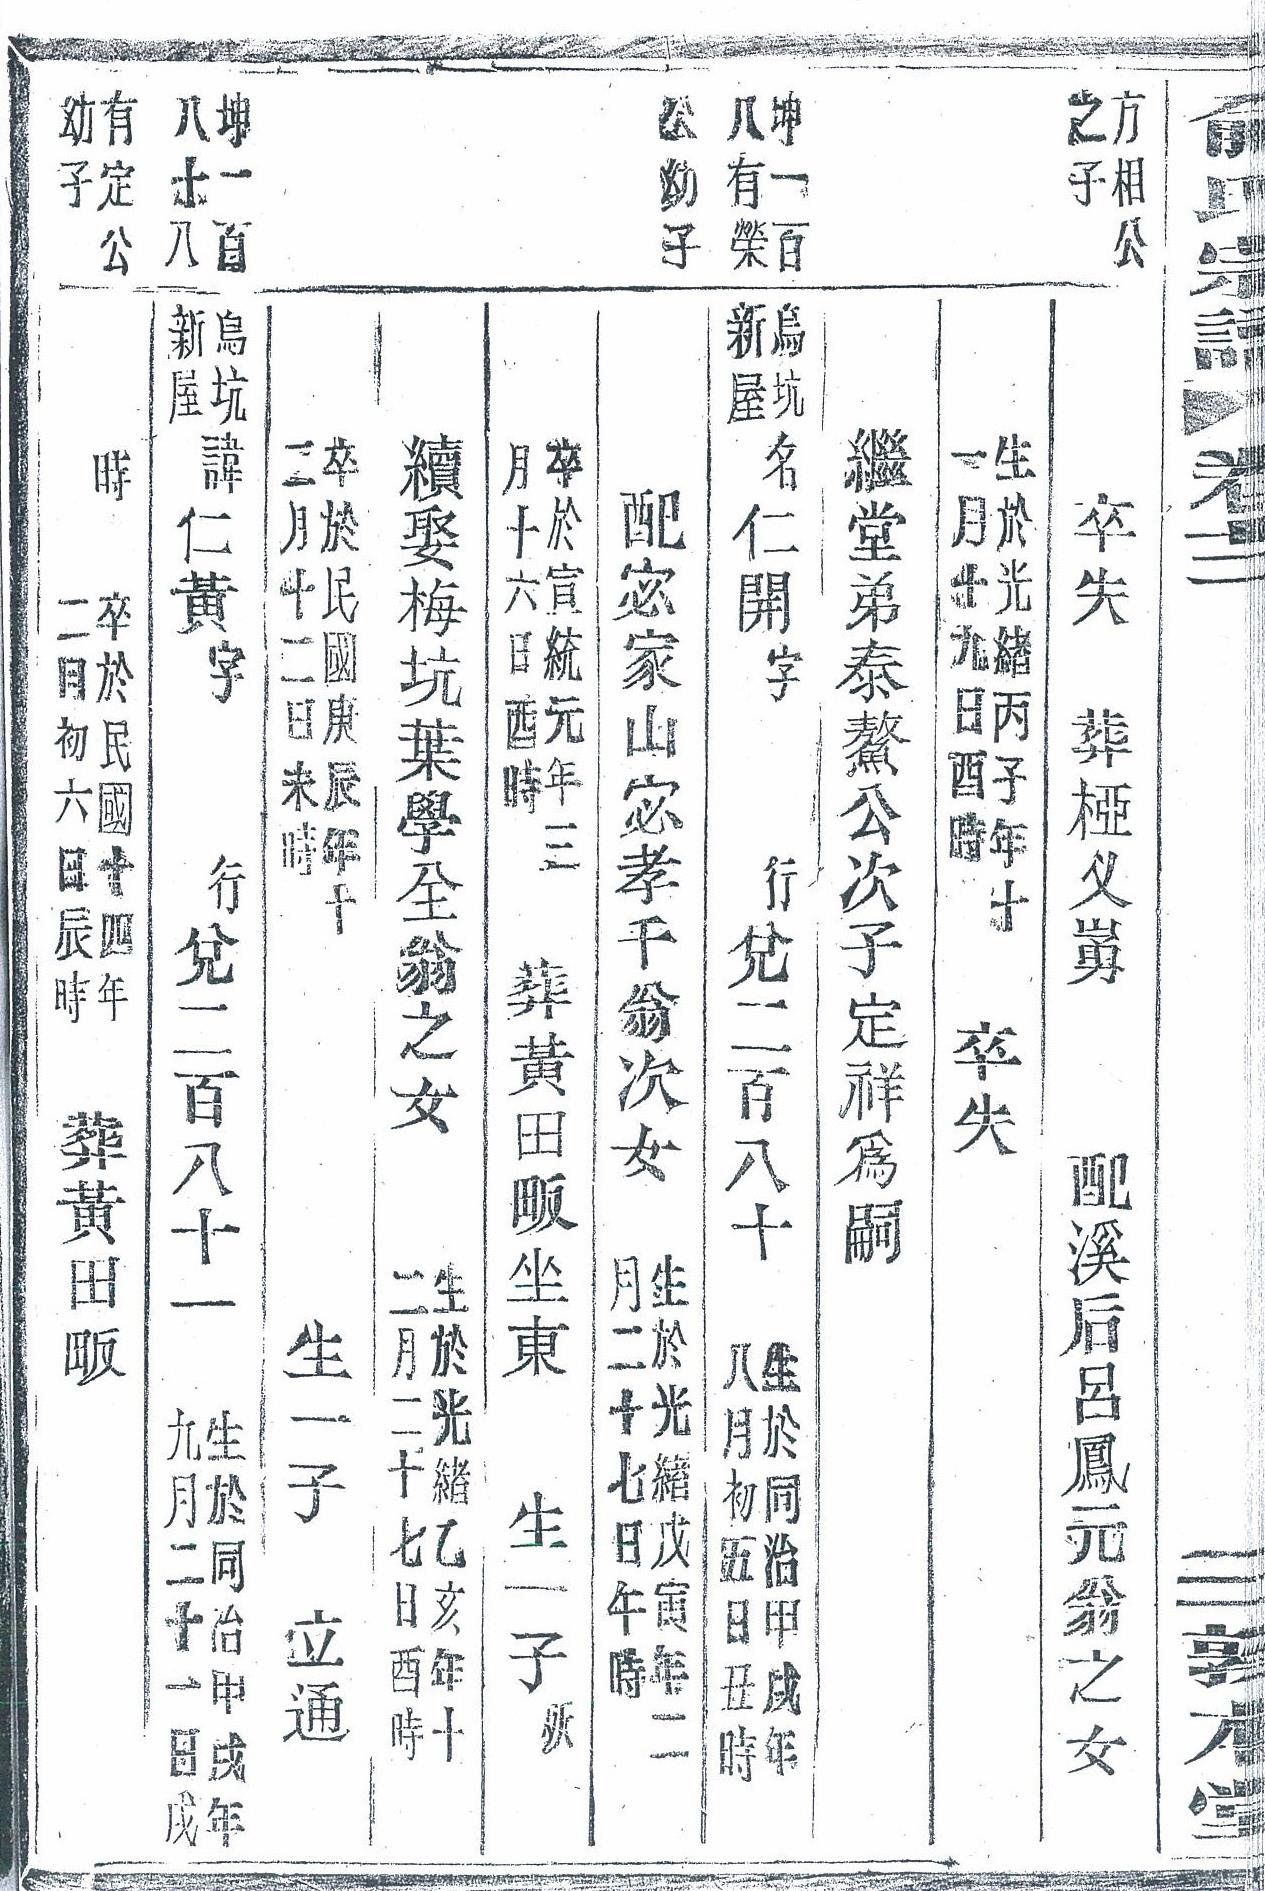 俞氏宗譜 卷二 敦本堂
方相公
之子
卒失 葬椏父崗 配溪后呂鳳元翁之女
生於光緒丙子年十
一月十九日酉時 卒失
繼堂弟泰鰲公次子定祥為嗣
坤一百
八有榮
公幼子
烏坑
新屋 名仁開字 行兌二百八十 生於同治甲戌年
八月初五日丑時
配宓家山宓孝千翁次女 生於光緒戊寅年二
月二十七日午時
卒於宣統元年三
月十六日酉時 葬黃田畈坐東 生一子 殀
續娶梅坑葉學全翁之女 生於光緒乙亥年十
二月二十七日酉時
卒於民國庚辰年十
二月十二日未時 生一子 立通
坤一百
八十八
有定公
幼子
烏坑
新屋 諱仁黃字 行兌二百八十一 生於同治甲戌年
九月二十一日戌
時 卒於民國十四年
二月初六日辰時 葬黃田畈